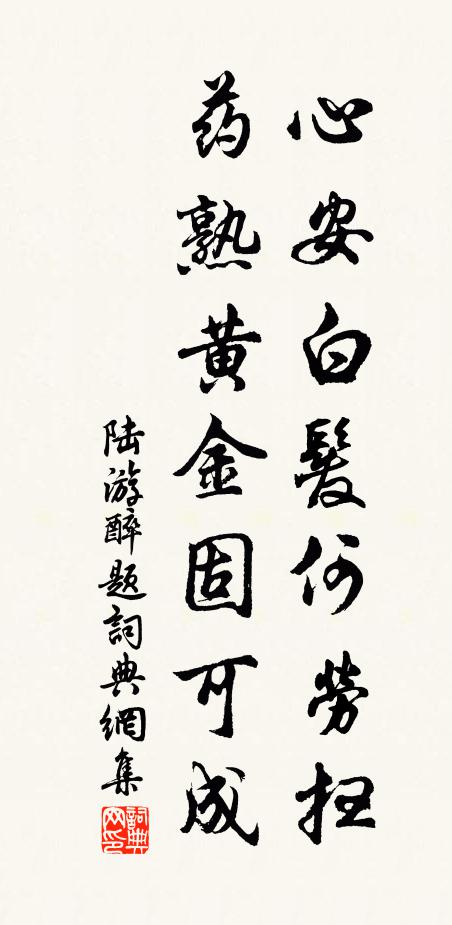 心安白髮何勞拒
药熟黄金固可成
陆游醉题詞典網集
詞典网印